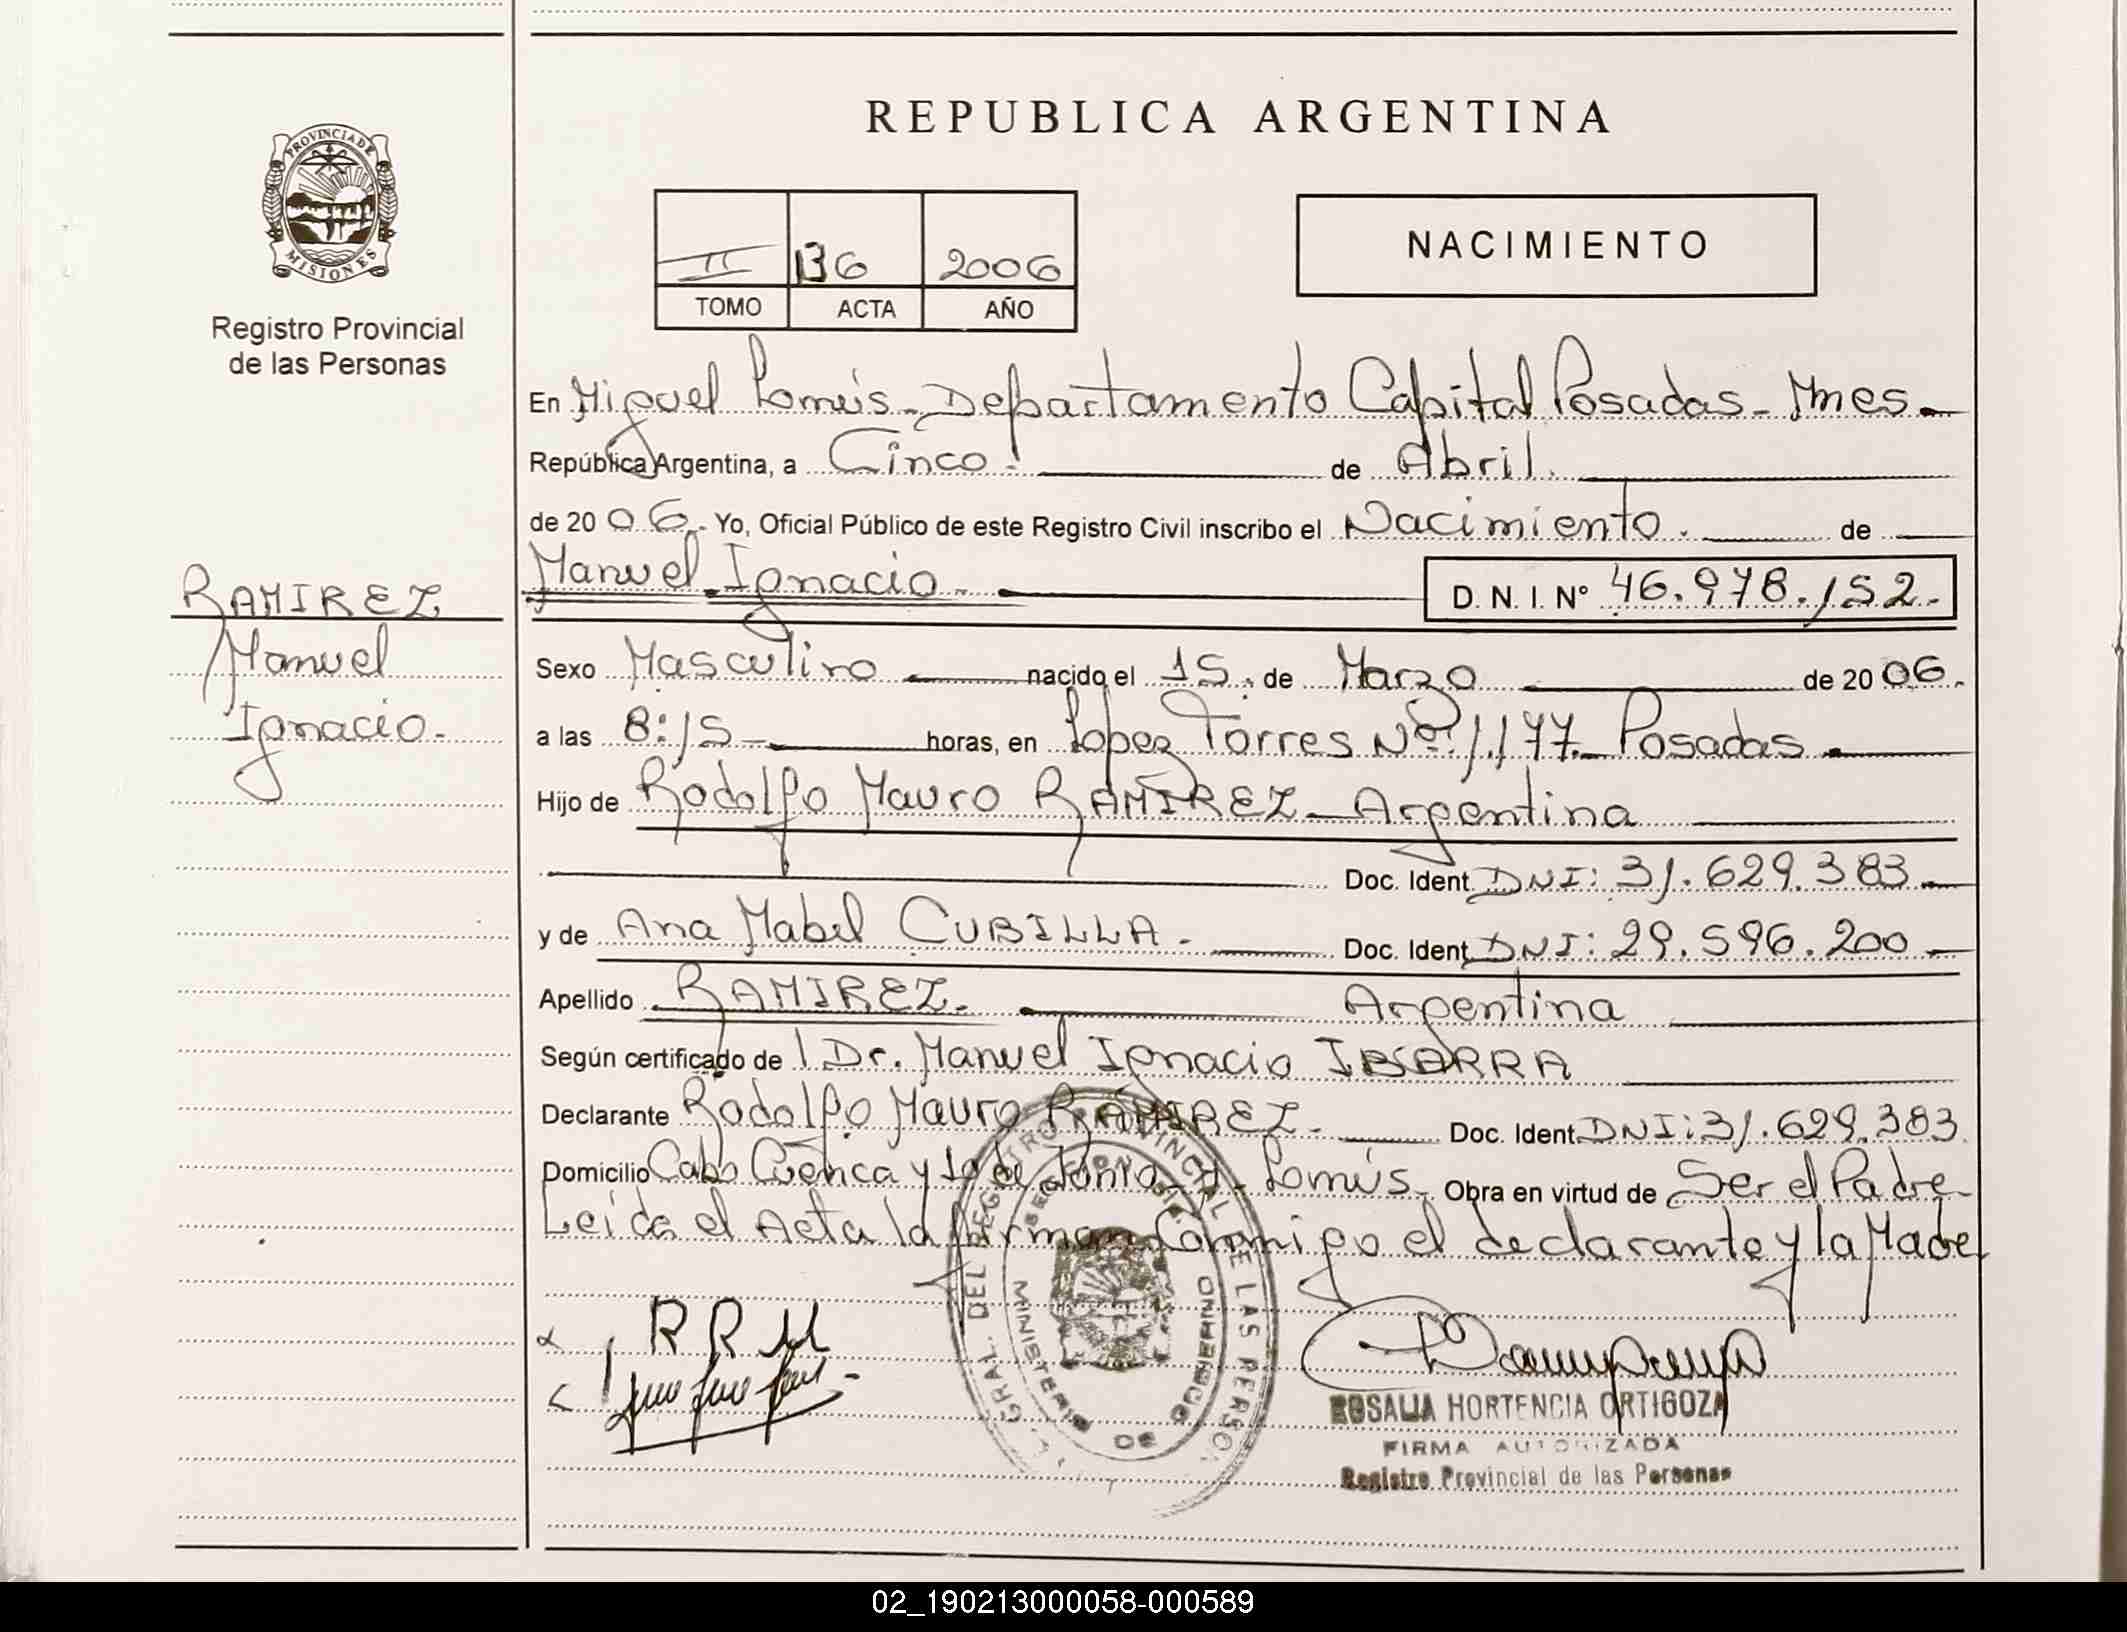 REPUBLICA ARGENTINA
PROVINCIA DE
MISIONES
Registro Provincial
de las Personas
NACIMIENTO
II 136 2006
TOMO ACTA AÑO
En Miguel Lanús - Departamento Capital Posadas - Mnes -
República Argentina, a Cinco. de Abril.
de 20 06. Yo, Oficial Público de este Registro Civil inscribo el Nacimiento. de
Manuel Ignacio. D. N. I. Nº 46.978.152.
RAMIREZ
Manuel
Ignacio.
Sexo Masculino nacido el 15. de Marzo de 20 06.
a las 8:15 horas, en Lopez Torres Nº 1.177 - Posadas
Hijo de Rodolfo Mauro RAMIREZ - Argentina
Doc. Ident. DNI: 31.629.383
y de Ana Mabel CUBILLA. Doc. Ident. DNI: 29.596.200
Apellido RAMIREZ. Argentina
Según certificado de Dr. Manuel Ignacio IBARRA
Declarante Rodolfo Mauro RAMIREZ. Doc. Ident. DNI: 31.629.383
Domicilio Cabo Cuenca y Lanús. Obra en virtud de Ser el Padre
Leída el Acta la firman Conmigo el declarante y la Madre
RRM
GRAL. DEL REGISTRO PROVINCIAL DE LAS PERSON
MINISTERIO DE GOBIERNO
ROSALIA HORTENCIA ORTIGOZA
FIRMA AUTORIZADA
Registro Provincial de las Personas
02_190213000058-000589